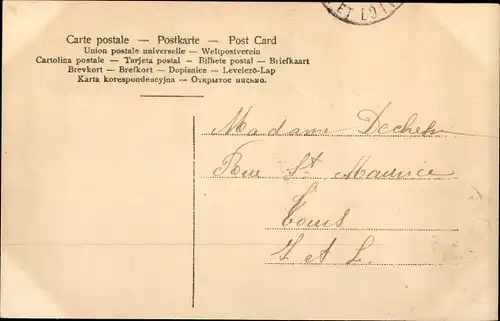 ET LOIR
Carte postale — Postkarte — Post Card
Union postale universelle — Weltpostverein
Cartolina postale — Tarjeta postal — Bilhete postal — Briefkaart
Brevkort — Brefkort — Dopisnice — Levelező-Lap
Karta korespondencyjna — Открытое письмо.
Madame
Rue St Maurice
Tours
I et L.